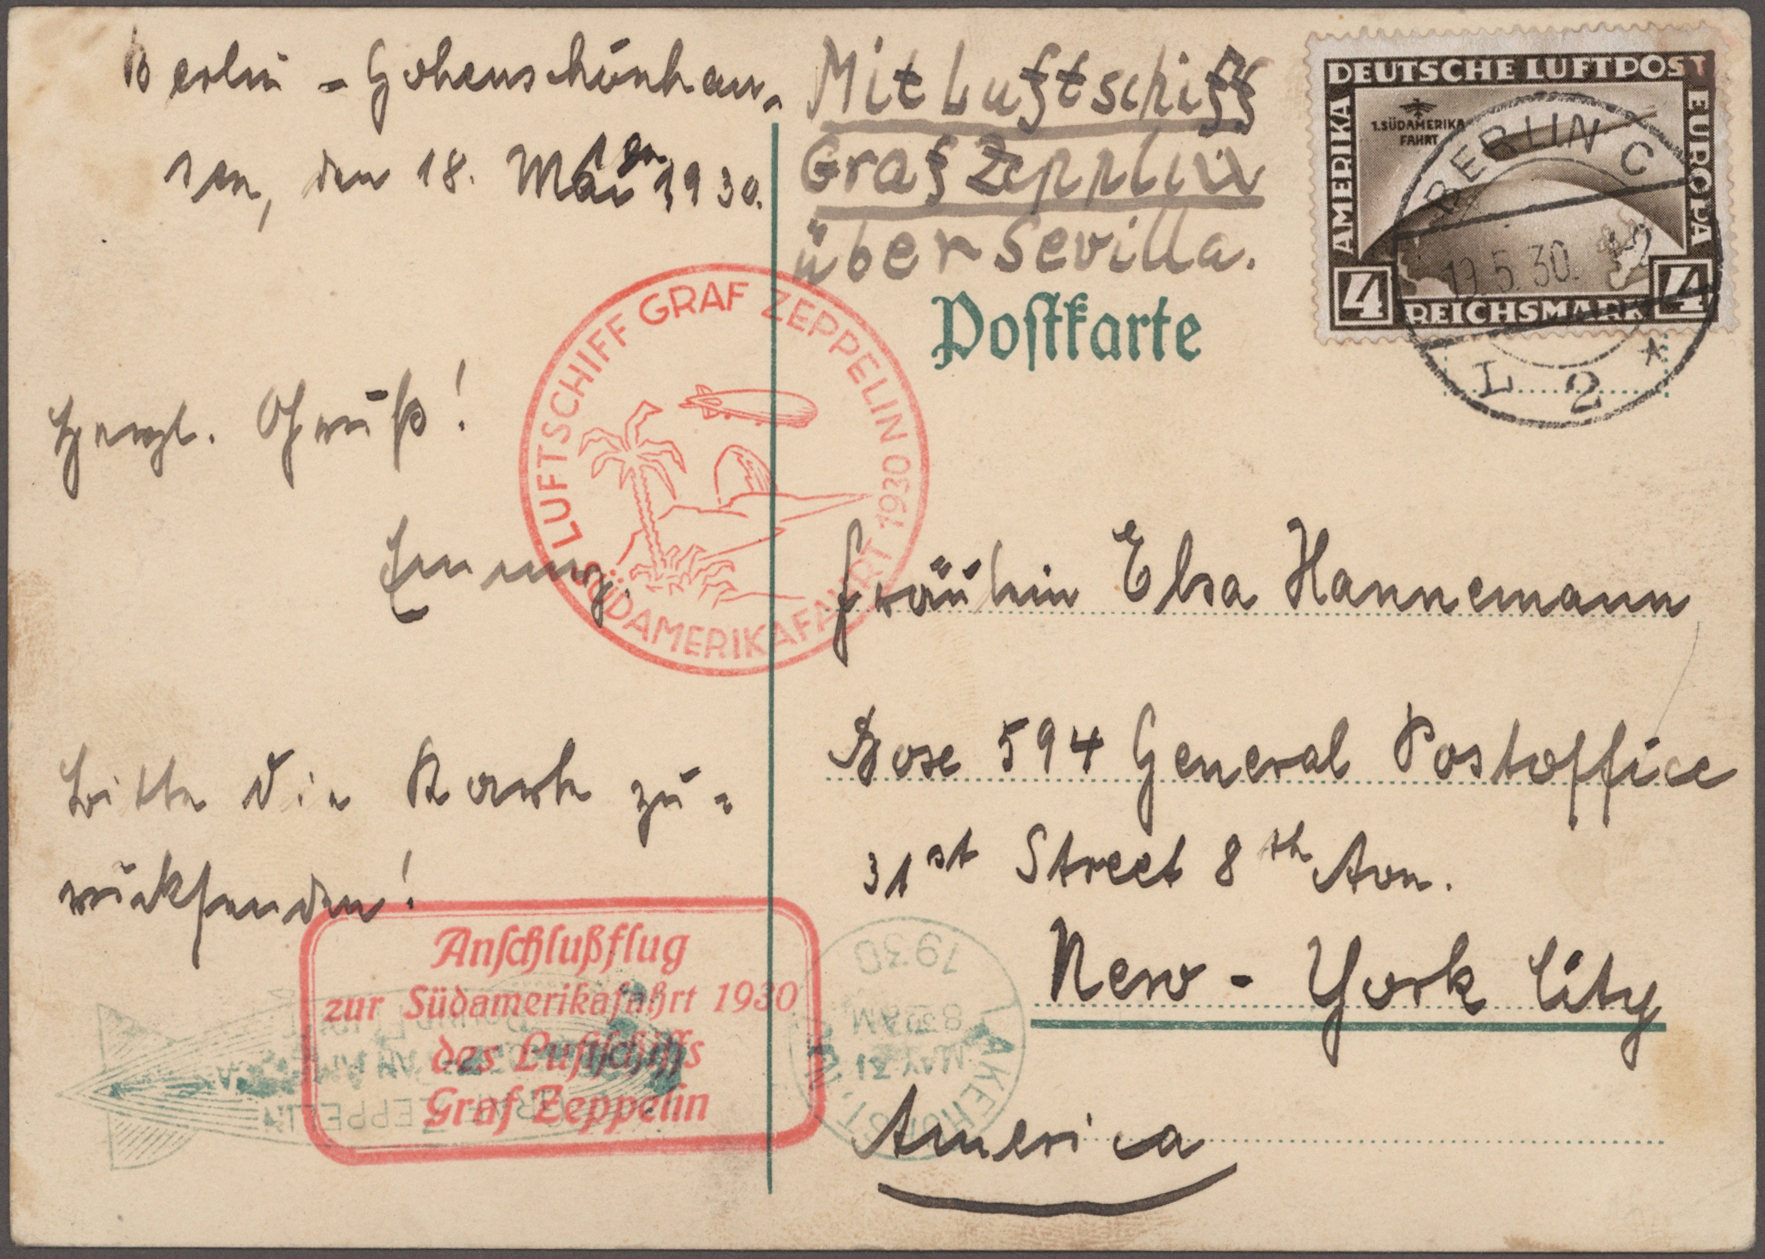 Berlin-Hohenschönhau-
sen, den 18. Mai 1930.
Herzl. Gruß!
Bitte die Karte zu-
rücksenden!
Mit Luftschiff
Graf Zeppelin
über Sevilla.
Postkarte
DEUTSCHE LUFTPOST
AMERIKA
EUROPA
1.SÜDAMERIKA
FAHRT
4
REICHSMARK
4
BERLIN C
19.5.30.
L 2 *
LUFTSCHIFF GRAF ZEPPELIN
SÜDAMERIKAFAHRT 1930
Fräulein Elsa Hannemann
Boxe 594 General Postoffice
31st Street 8th Ave.
New-York City
America
Anschlußflug
zur Südamerikafahrt 1930
des Luftschiffs
Graf Zeppelin
LAKEHURST, N.J.
MAY 31
8 30 AM
1930
ZEPPELIN